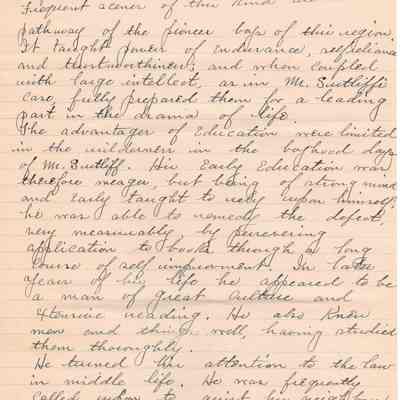 Frequent scenes of this kind
pathway of the pioneer boys of this region
It taught power of Endurance, selfreliance
and trustworthiness; and when coupled
with large intellect, as in Mr. Sutliffs
case, fully prepared them for a leading
part in the drama of life.
The advantages of Education were limited
in the wilderness in the boyhood days
of Mr. Sutliff. His Early Education was
therefore meager, but being of strong mind
and Early taught to rely upon himself
he was able to remedy the defect,
very measurably, by persevering
application to books through a long
course of self improvment. In later
years of his life he appeared to be
a man of great culture and
Extensive reading. He also knew
men and things well, having studied
them thoroughly.
He turned his attention to the law
in middle life. He was frequently
called upon to assist his neighbors